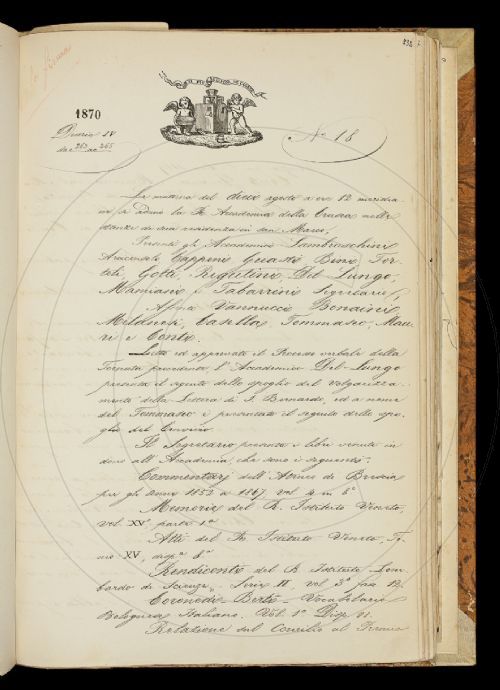 1870
Diario IV
da c. 263 a c. 265
Nº 18
La mattina del dieci agosto a ore 12 meridia-
ne, si adunò la R. Accademia della Crusca nelle
stanze di sua residenza in san Marco.
Presenti gli Accademici Lambruschini
Arciconsolo Capponi Guasti Bini Tor-
teli, Gotti, Rigutini, Del Lungo,
Mamiani, Tabarrini Segretario,
Assenti Vannucci Bonaini
Milanesi, Casella, Tommaseo, Mau-
ri e Conti.
Letto ed approvato il Processo verbale della
Tornata precedente l'Accademico Del-Lungo
presenta il seguito dello spoglio del Volgarizza-
mento della Lettera di S. Bernardo, ed a nome
del Tommaseo è presentato il seguito dello spo-
glio del
Il Segretario presenta i libri venuti in
dono all'Accademia, che sono i seguenti:
Commentarj dell'Ateneo di Brescia
per gli anni 1852 a 1867 vol. 4 in 8º
Memorie del R. Istituto Veneto,
Vol. XV, parte 1ª
Atti del R. Istituto Veneto, To-
mo XV, disp.ª 8ª
Rendiconti del R. Istituto Lom-
bardo di Scienze, Serie II, vol. 3º fas. 12.
Coronedi Berti - Vocabolario
Bolognese Italiano. Vol. 1º Disp. VI.
Relazione sul Consilio al Premio